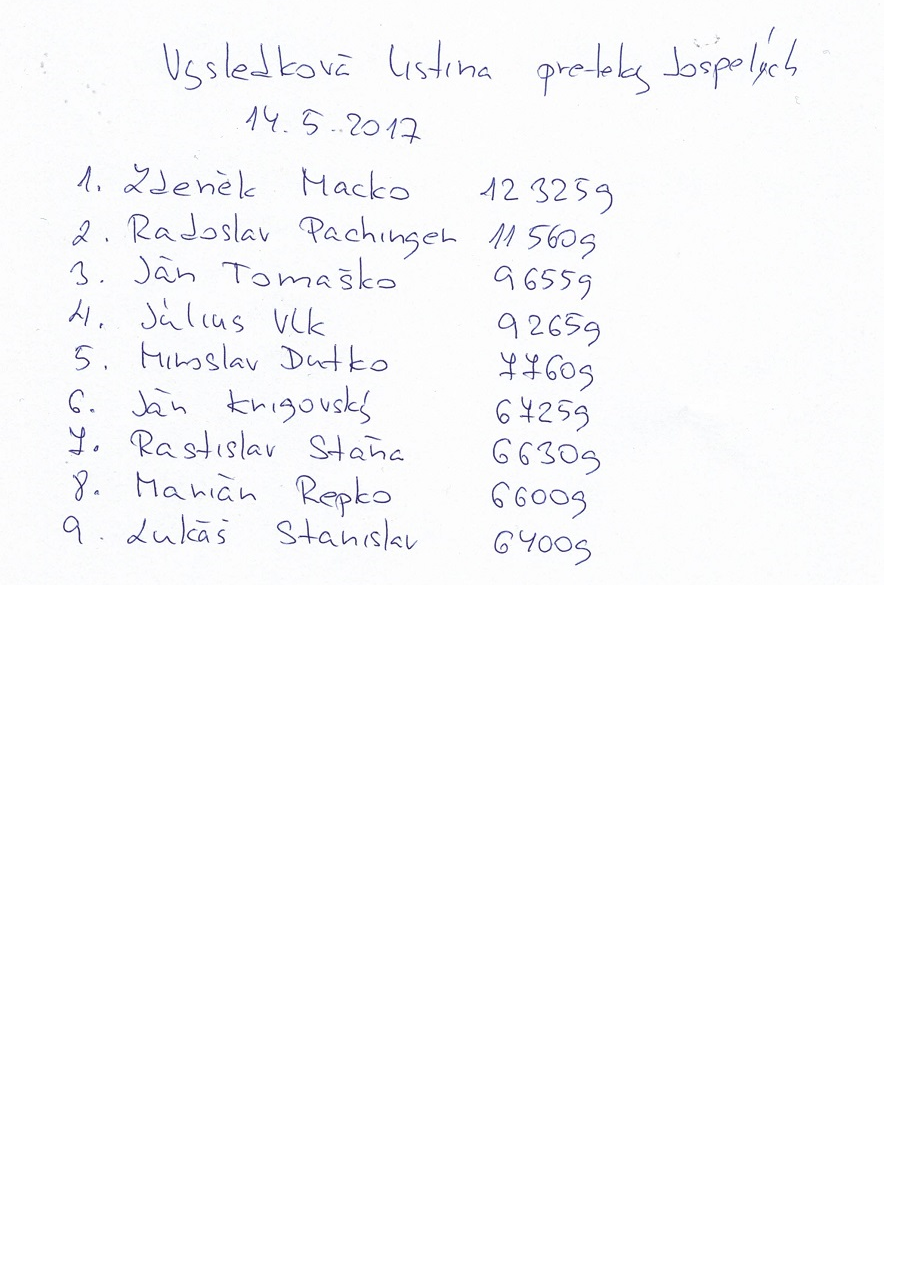 Výsledková listina preteky dospelých
14.5.2017
1. Zdeněk Macko 12 325g
2. Radoslav Pachinger 11 560g
3. Ján Tomaško 9 655g
4. Július Vlk 9 265g
5. Miroslav Dutko 7760g
6. Ján Krigovský 6725g
7. Rastislav Staňa 6630g
8. Marián Repko 6600g
9. Lukáš Stanislav 6400g